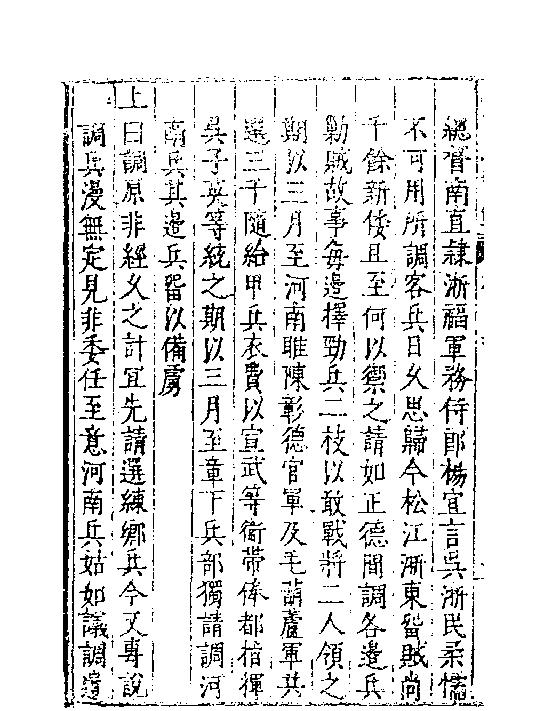 總督南直隷浙福軍務侍郎楊宜言吳浙民柔懦
不可用所調客兵日久思歸今松江浙東畱賊尚
千餘新倭且至何以禦之請如正德間調各邉兵
勦賊故事每邉擇勁兵二枝以敢戰將二人領之
期以三月至河南睢陳彰德官軍及毛葫蘆軍共
選三千隨給甲兵衣費以宣武等衛帶俸都指揮
吳子英等統之期以三月至章下兵部獨請調河
南兵其邉兵畱以備虜
上曰調原非經久之計宜先請選練鄉兵今又專說
調兵漫無定見非委任至意河南兵姑如議調遣